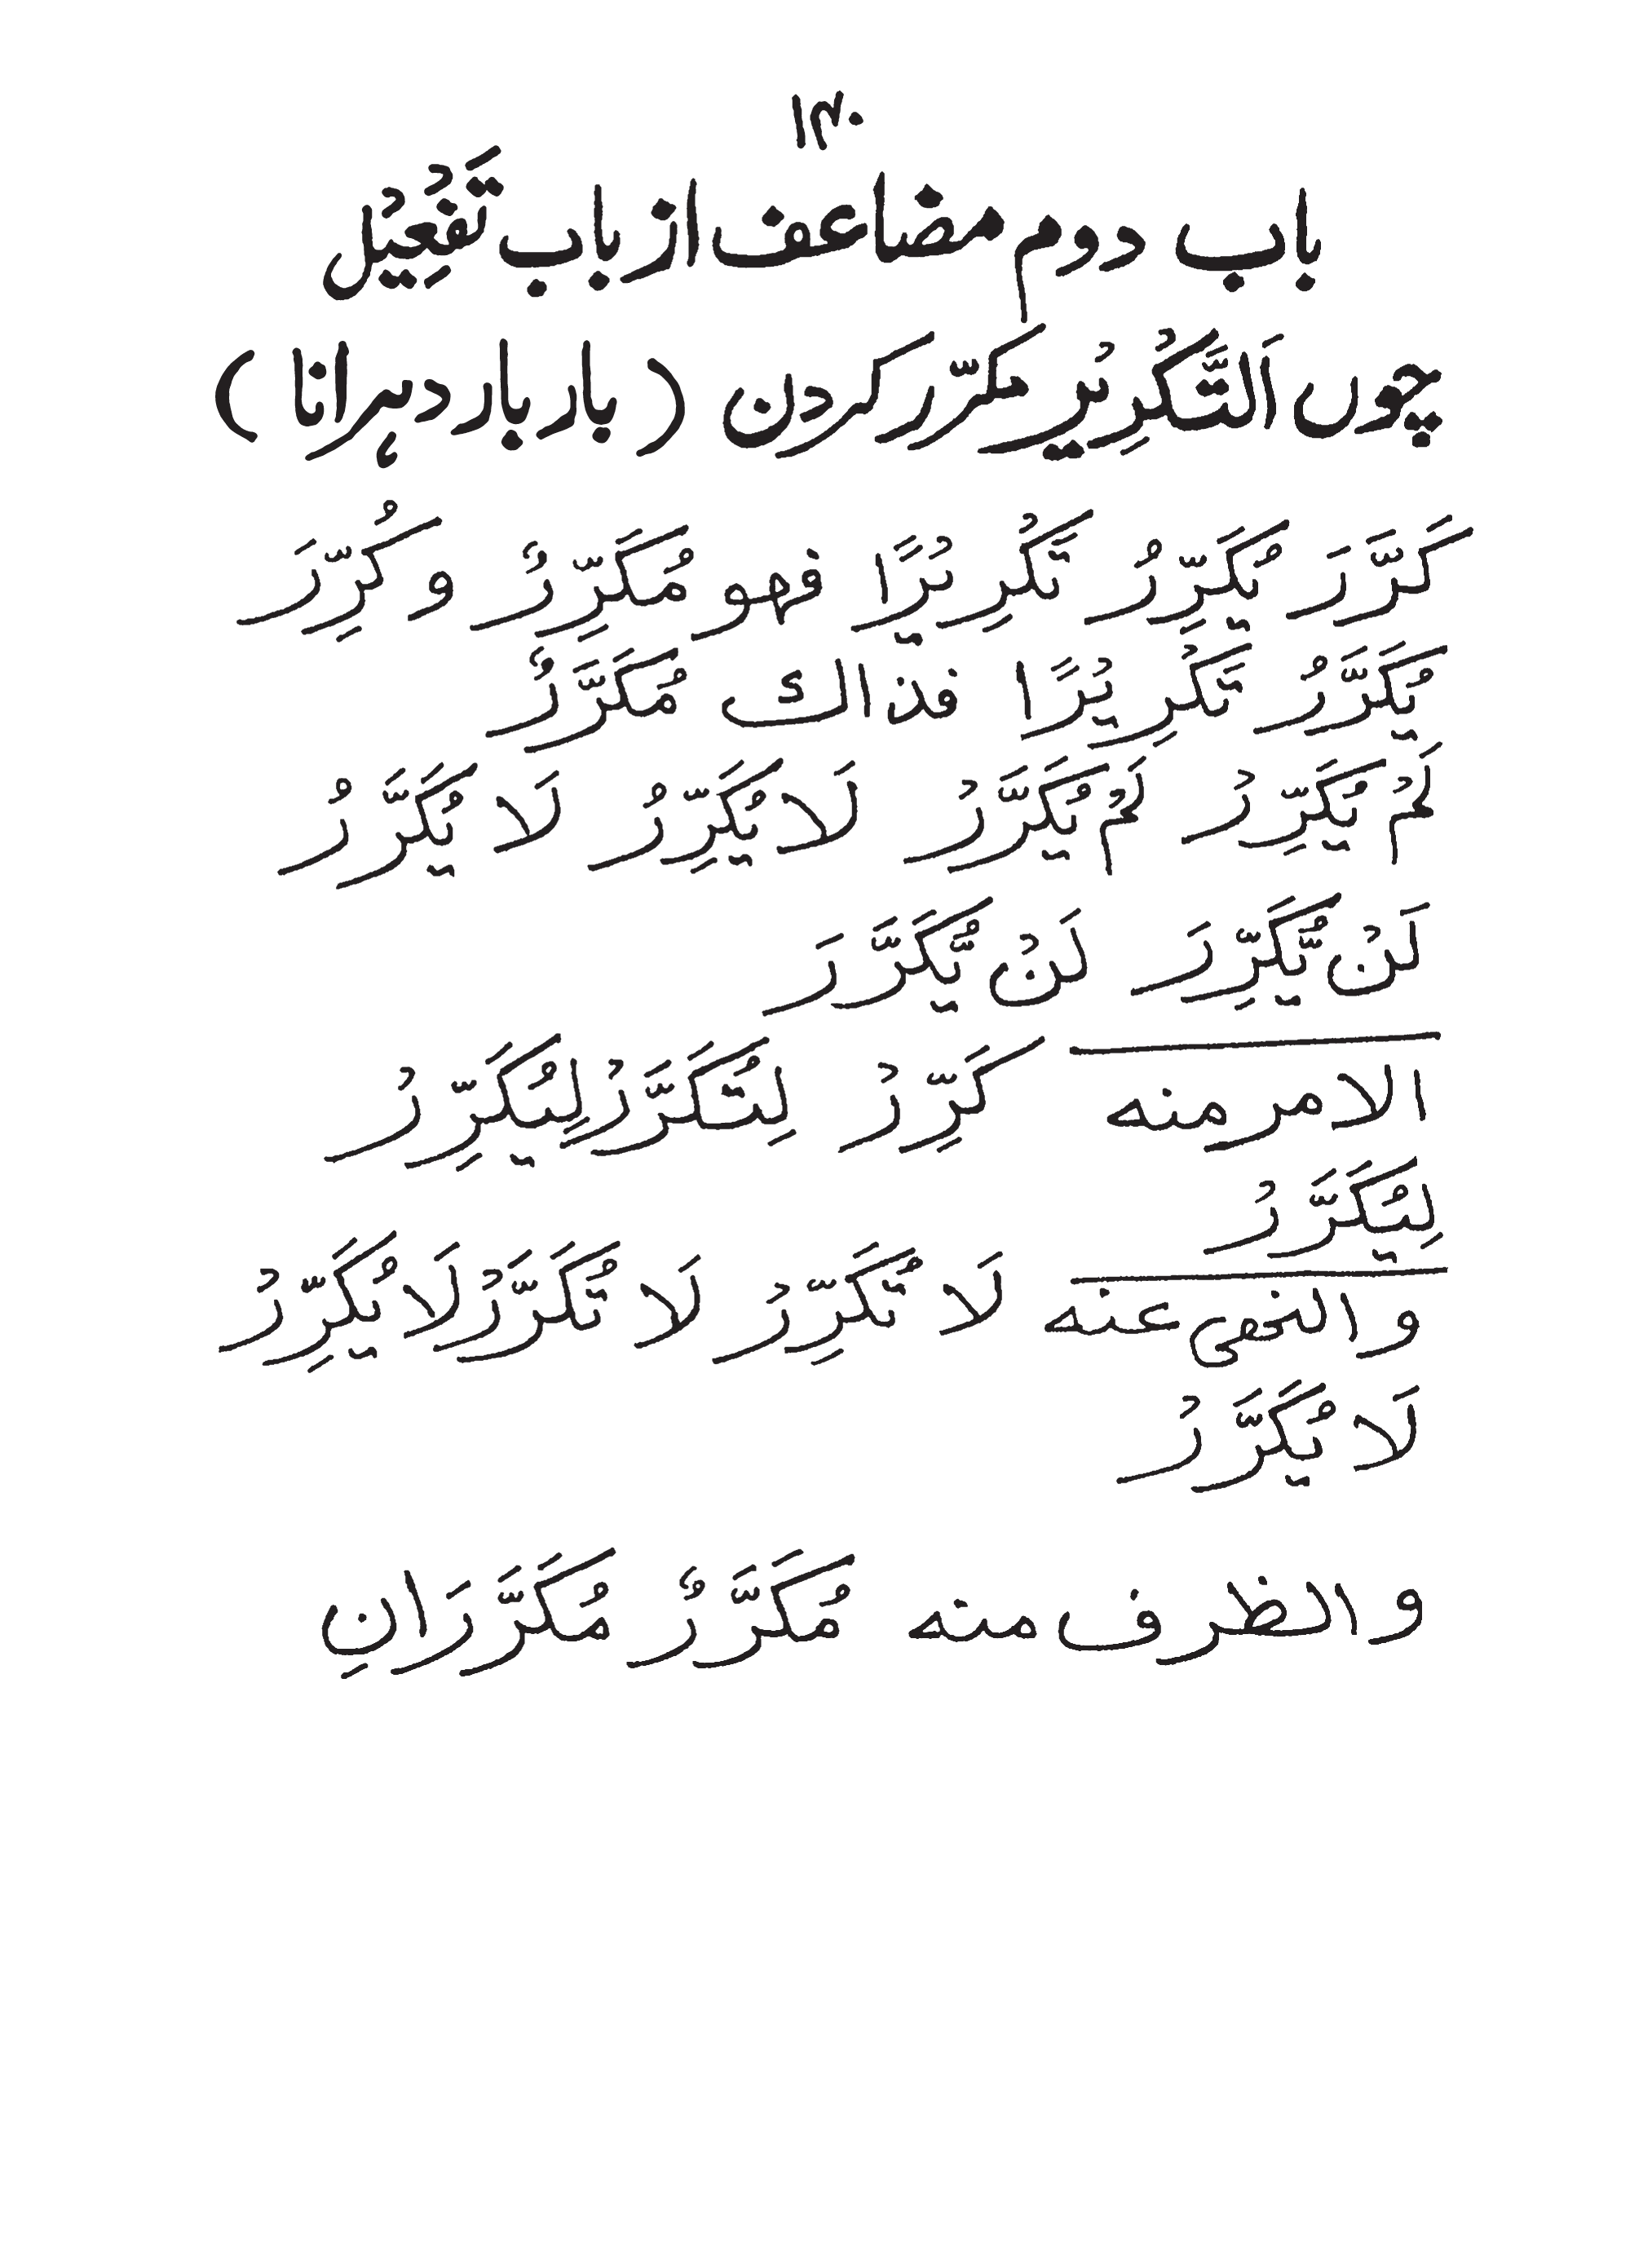 ۱۴۰
باب دوم مضاعف از باب تَفْعِيْل
چوں اَلتَّكْرِيْر مكرّر كردن ( بار بار دہرانا )
كَرَّرَ يُكَرِّرُ تَكْرِيْرًا فهو مُكَرِّرٌ و كُرِّرَ
يُكَرَّرُ تَكْرِيْرًا فذاك مُكَرَّرٌ
لَمْ يُكَرِّرْ لَمْ يُكَرَّرْ لَا يُكَرِّرُ لَا يُكَرَّرُ
لَنْ يُّكَرِّرَ لَنْ يُّكَرَّرَ
الامر منه كَرِّرْ لِتُكَرَّرْ لِيُكَرِّرْ
لِيُكَرَّرْ
و النهى عنه لَا تُكَرِّرْ لَا تُكَرَّرْ لَا يُكَرِّرْ
لَا يُكَرَّرْ
و الظرف منه مُكَرَّرٌ مُكَرَّرَانِ